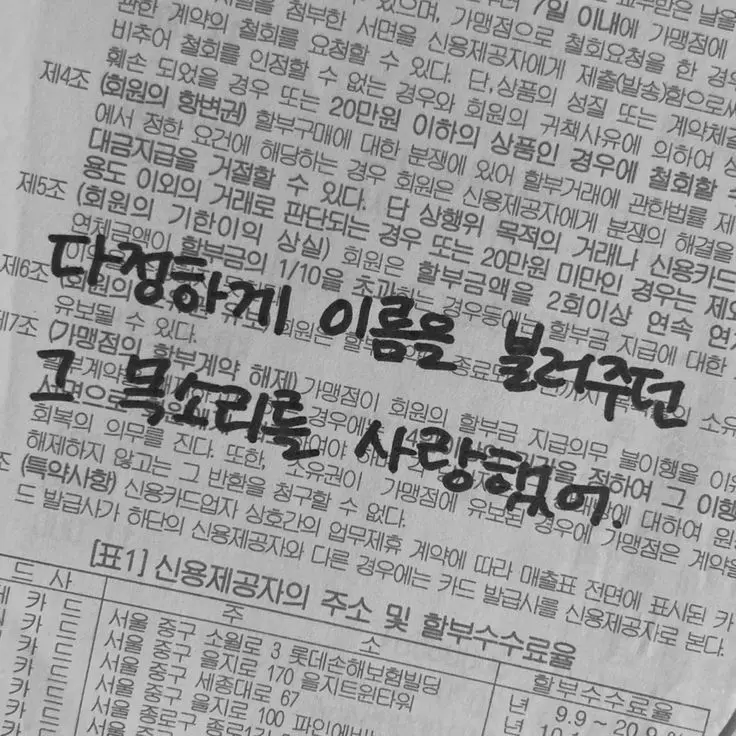 7일 이내에 가맹점에
첨부한 서면을 신용제공자에게 제출(발송)함으로써
관한 계약의 철회를 요청할 수 있으며, 가맹점으로 철회요청을 한 경우
비추어 철회를 인정할 수 없는 경우와 회원의 귀책사유에 의하여 상
훼손 되었을 경우 또는 20만원 이하의 상품인 경우에 철회할 수
제4조 (회원의 항변권) 할부구매에 대한 분쟁에 있어 할부거래에 관한법률 제
에서 정한 요건에 해당하는 경우 회원은 신용제공자에게 분쟁의 해결을
대금지급을 거절할 수 있다. 단 상행위 목적의 거래나 신용카드
용도 이외의 거래로 판단되는 경우 또는 20만원 미만인 경우는 제외
제5조 (회원의 기한이익 상실) 회원은 할부금액을 2회이상 연속 연
연체금액이 할부금의 1/10을 초과하는 경우등에는 할부금 지급에 대한
다정하게 이름을 불러주던
제6조
유보될 수 있다.
제7조 (가맹점의 할부계약 해제) 가맹점이 회원의 할부금 지급의무 불이행을 이유
그 목소리를 사랑했어.
회복의 의무를 진다. 또한, 소유권이 가맹점에 유보된 경우에 가맹점은 계약을
해제하지 않고는 그 반환을 청구할 수 없다.
조 (특약사항) 신용카드업자 상호간의 업무제휴 계약에 따라 매출표 전면에 표시된 카
드 발급사가 하단의 신용제공자와 다른 경우에는 카드 발급사를 신용제공자로 본다.
[표1] 신용제공자의 주소 및 할부수수료율
드 사 주 소 할부수수료율
카 드 서울 중구 소월로 3 롯데손해보험빌딩 년 9.9 ~ 20.9 %
카 드 서울 중구 을지로 170 을지트윈타워 년
카 드 서울 중구 세종대로 67
카 드 서울 중구 을지로 100
서울 종로구